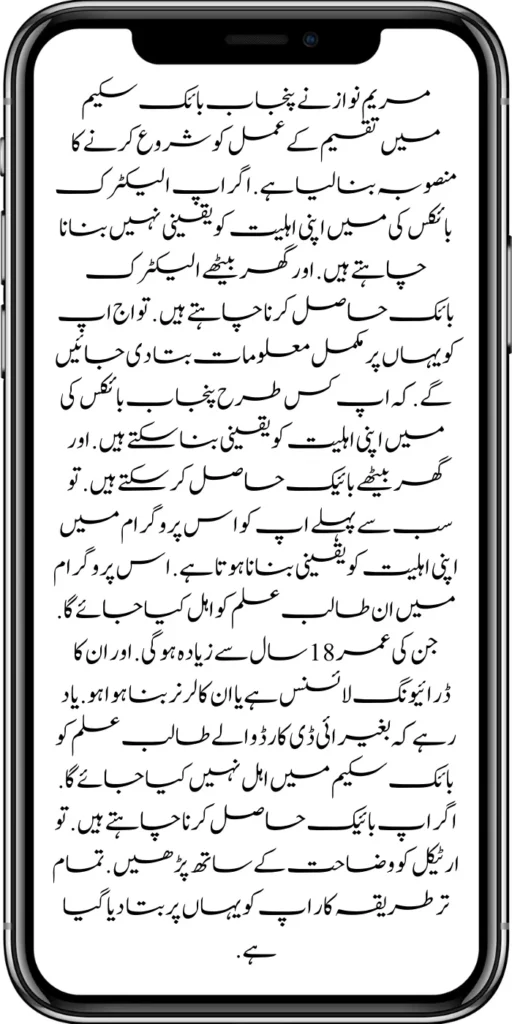 مریم نواز نے پنجاب بائک سکیم
میں تقسیم کے عمل کو شروع کرنے کا
منصوبہ بنا لیا ہے. اگر اپ الیکٹرک
بائکس کی میں اپنی اہلیت کو یقینی نہیں بنانا
چاہتے ہیں. اور گھر بیٹھے الیکٹرک
بائک حاصل کرنا چاہتے ہیں. تو اج اپ
کو یہاں پر مکمل معلومات بتا دی جائیں
گے. کہ اپ کس طرح پنجاب بائکس کی
میں اپنی اہلیت کو یقینی بنا سکتے ہیں. اور
گھر بیٹھے بائیک حاصل کر سکتے ہیں. تو
سب سے پہلے اپ کو اس پروگرام میں
اپنی اہلیت کو یقینی بنانا ہوتا ہے. اس پروگرام
میں ان طالب علم کو اہل کیا جائے گا.
جن کی عمر 18 سال سے زیادہ ہوگی. اور ان کا
ڈرائیونگ لائسنس ہے یا ان کا لرنر بنا ہوا ہو. یاد
رہے کہ بغیر ائی ڈی کارڈ والے طالب علم کو
بائک سکیم میں اہل نہیں کیا جائے گا.
اگر اپ بائیک حاصل کرنا چاہتے ہیں. تو
ارٹیکل کو وضاحت کے ساتھ پڑھیں. تمام
تر طریقہ کار اپ کو یہاں پر بتا دیا گیا
ہے.